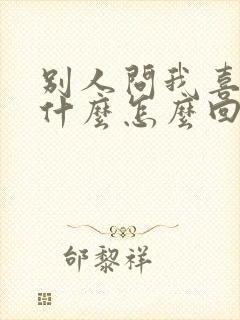 別人問我喜
什麼怎麼回
邰黎祥